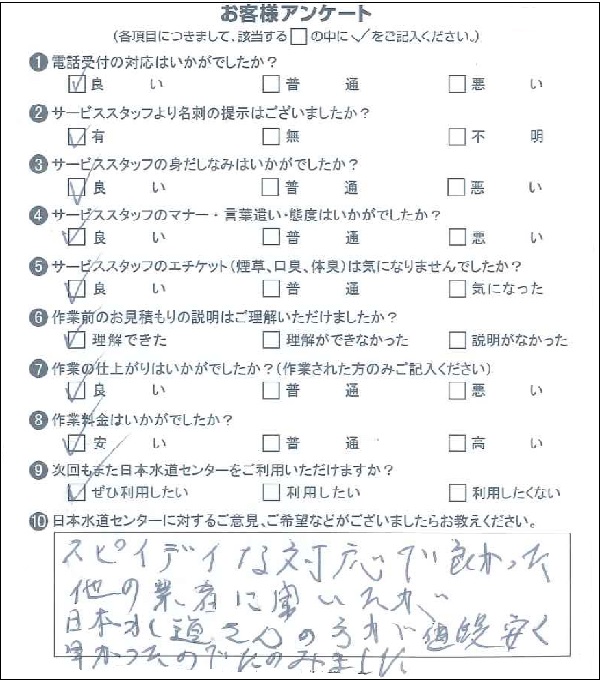 お客様アンケート
(各項目につきまして、該当する□の中に✓をご記入ください。)
❶電話受付の対応はいかがでしたか?
☑良い □普通 □悪い
❷サービススタッフより名刺の提示はございましたか?
☑有 □無 □不明
❸サービススタッフの身だしなみはいかがでしたか?
☑良い □普通 □悪い
❹サービススタッフのマナー・言葉遣い・態度はいかがでしたか?
☑良い □普通 □悪い
❺サービススタッフのエチケット(煙草、口臭、体臭)は気になりませんでしたか?
☑良い □普通 □気になった
❻作業前のお見積もりの説明はご理解いただけましたか?
☑理解できた □理解ができなかった □説明がなかった
❼作業の仕上がりはいかがでしたか?(作業された方のみご記入ください)
☑良い □普通 □悪い
❽作業料金はいかがでしたか?
☑安い □普通 □高い
❾次回もまた日本水道センターをご利用いただけますか?
☑ぜひ利用したい □利用したい □利用したくない
❿日本水道センターに対するご意見、ご希望などがございましたらお教えください。
スピイディな対応で良かった
他の業者に聞いたが
日本水道さんの方が値段安く
早かったのでたのみました